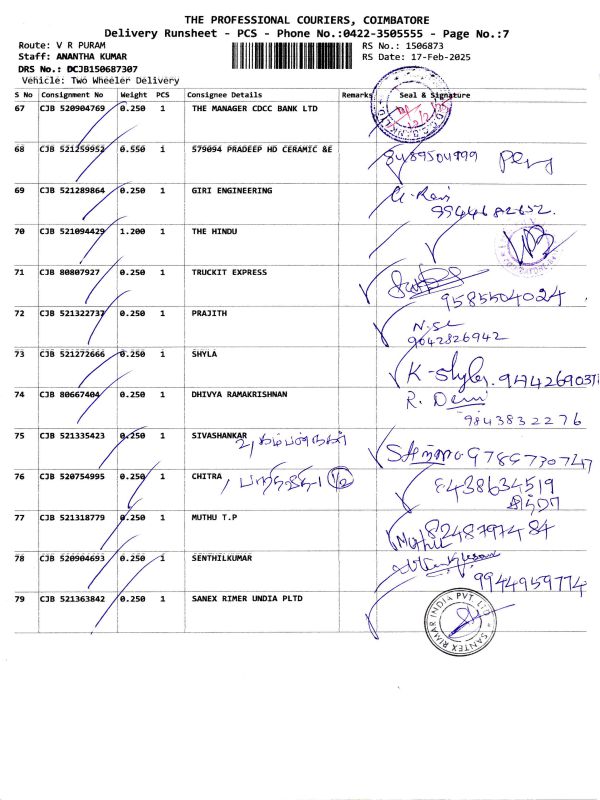 THE PROFESSIONAL COURIERS, COIMBATORE
Delivery Runsheet - PCS - Phone No.:0422-3505555 - Page No.:7
Route: V R PURAM RS No.: 1506873
Staff: ANANTHA KUMAR RS Date: 17-Feb-2025
DRS No.: DCJB150687307
Vehicle: Two Wheeler Delivery
S No Consignment No Weight PCS Consignee Details Remarks Seal & Signature
67 CJB 520904769 0.250 1 THE MANAGER CDCC BANK LTD
68 CJB 521259952 0.550 1 579094 PRADEEP HD CERAMIC &E 8489504999
69 CJB 521289864 0.250 1 GIRI ENGINEERING
9944682652.
70 CJB 521094429 1.200 1 THE HINDU
71 CJB 80807927 0.250 1 TRUCKIT EXPRESS
9585504024
72 CJB 521322737 0.250 1 PRAJITH
9042826942
73 CJB 521272666 0.250 1 SHYLA
74 CJB 80667404 0.250 1 DHIVYA RAMAKRISHNAN R. Devi
9843832276
75 CJB 521335423 0.250 1 SIVASHANKAR
76 CJB 520754995 0.250 1 CHITRA 9438634519
77 CJB 521318779 0.250 1 MUTHU T.P Muthu 8248797484
78 CJB 520904693 0.250 1 SENTHILKUMAR
9944959774
79 CJB 521363842 0.250 1 SANEX RIMER UNDIA PLTD SANTEX RIMAR INDIA PVT. LTD